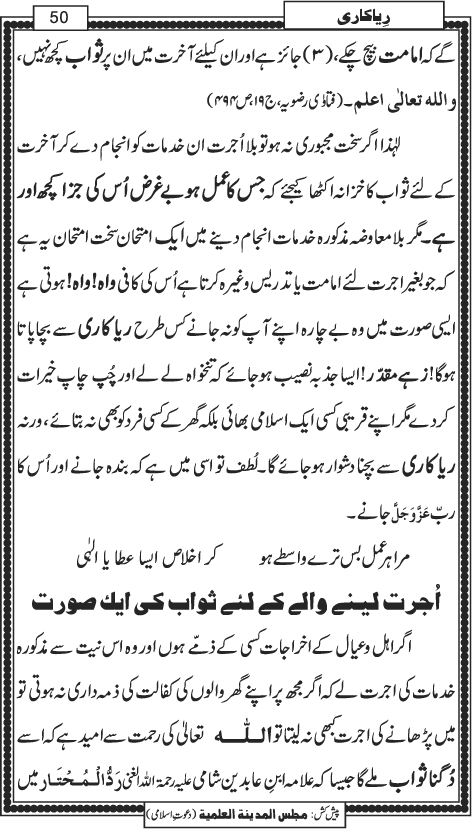 50
ریاکاری
گے کہ امامت بیچ چکے، (۳) جائز ہے اور ان کیلئے آخرت میں ان پر ثواب کچھ نہیں،
واللہ تعالیٰ اعلم۔ (فتاوٰی رضویہ، ج۱۹، ص۴۹۴)
لہٰذا اگر سخت مجبوری نہ ہو تو بلا اُجرت ان خدمات کو انجام دے کر آخرت
کے لئے ثواب کا خزانہ اکٹھا کیجئے کہ جس کا عمل ہو بے غرض اُس کی جزا کچھ اور
ہے۔ مگر بلا معاوضہ مذکورہ خدمات انجام دینے میں ایک امتحان سخت امتحان یہ ہے
کہ جو بغیر اجرت لئے امامت یا تدریس وغیرہ کرتا ہے اُس کی کافی واہ! واہ! ہوتی ہے
ایسی صورت میں وہ بے چارہ اپنے آپ کو نہ جانے کس طرح ریاکاری سے بچا پاتا
ہوگا! زہے مقدّر! ایسا جذبہ نصیب ہو جائے کہ تنخواہ لے لے اور چُپ چاپ خیرات
کردے مگر اپنے قریبی کسی ایک اسلامی بھائی بلکہ گھر کے کسی فرد کو بھی نہ بتائے، ورنہ
ریاکاری سے بچنا دشوار ہو جائے گا۔ لُطف تو اسی میں ہے کہ بندہ جانے اور اُس کا
ربّ عَزَّوَجَلَّ جانے۔
مرا ہر عمل بس ترے واسطے ہو کر اخلاص ایسا عطا یا الٰہی
اُجرت لینے والے کے لئے ثواب کی ایک صورت
اگر اہل و عیال کے اخراجات کسی کے ذمّے ہوں اور وہ اس نیت سے مذکورہ
خدمات کی اجرت لے کہ اگر مجھ پر اپنے گھر والوں کی کفالت کی ذمہ داری نہ ہوتی تو
میں پڑھانے کی اجرت کبھی نہ لیتا تو اللہ تعالیٰ کی رحمت سے امید ہے کہ اسے
دُگنا ثواب ملے گا جیسا کہ علامہ ابنِ عابدین شامی علیہ رحمۃ اللہ الغنی رَدُّالْمُحْتَار میں
پیش کش: مجلس المدینۃ العلمیۃ (دعوتِ اسلامی)